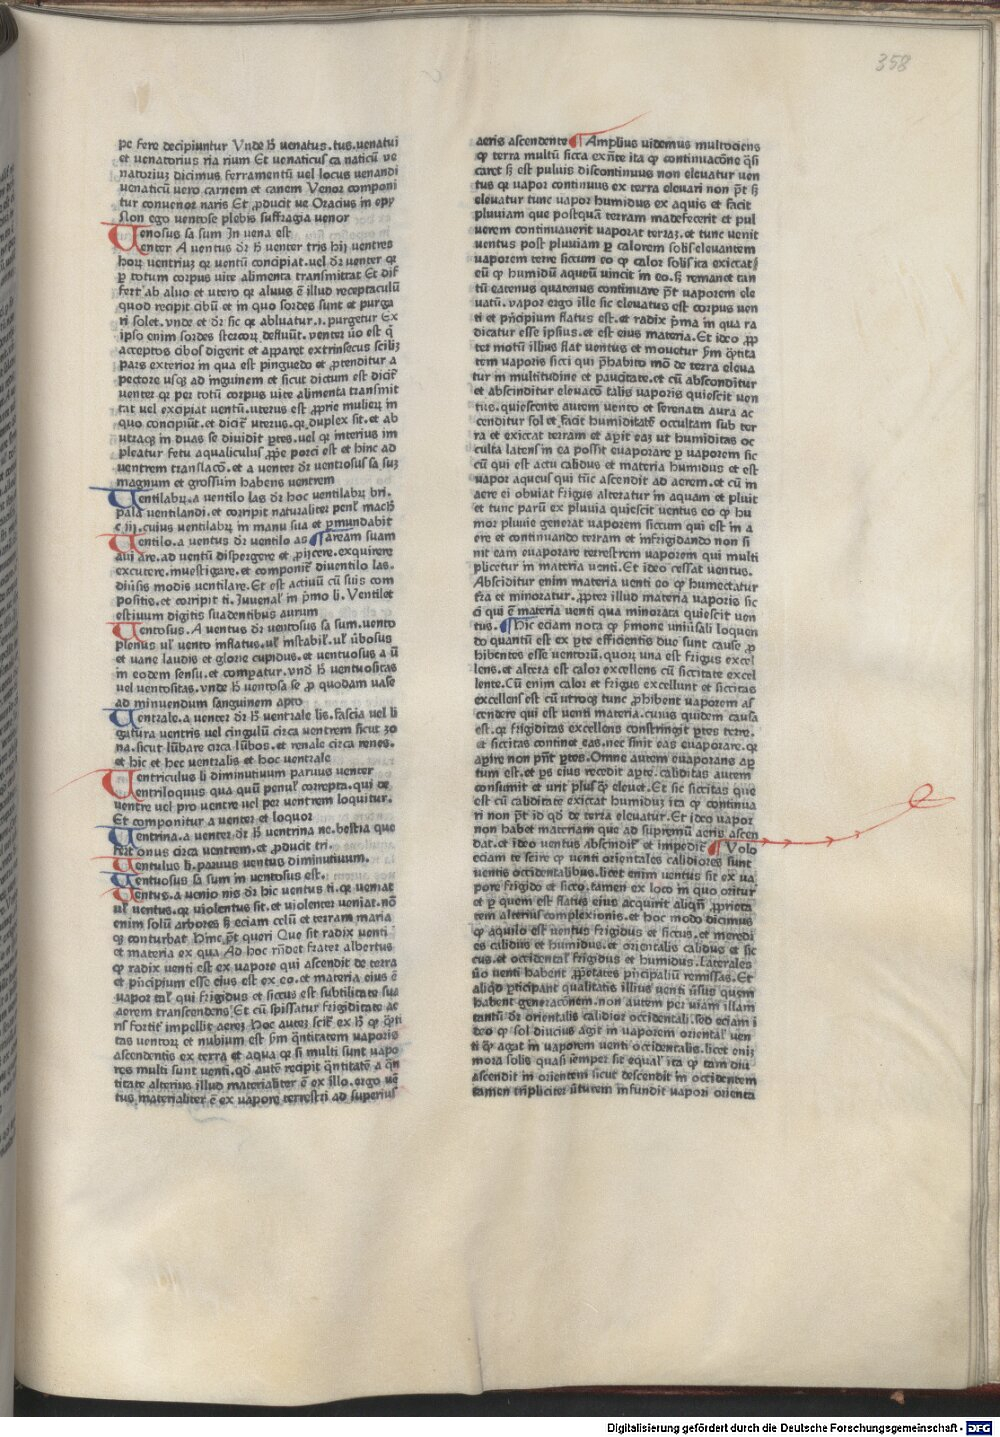 358
pe fere decipiuntur Vnde hͦ uenatus.tus.uenatui
et uenatorius ria rium Et uenaticus ca naticū ue
natorius dicimus ferramentū uel locus uenandi
uenaticū uero carnem et canem Venor componi
tur conuenor naris Et ꝓducit ue Oracius in epy
ston ego uentose plebis suffragia uenor
Uenosus sa sum In uena est
Uenter A uentus dr̄ hͦ uenter tris hij uentres
horꝝ uentriuꝫ qꝛ uentū concipiat.uel dr̄ uenter qꝛ
ꝑ totum corpus uite alimenta transmittat Et dif
fert ab aluo et utero qꝛ aluus ē illud receptaculū
quod recipit cibū et in quo sordes sunt et purga
ri solet.vnde et dr̄ sic qꝛ abluatur.ı.purgetur Ex
ipso enim sordes stercorꝝ defluūt.uenter ūo est q̄
acceptos cibos digerit et apparet extrinsecus sciliꝫ
pars exterior in qua est pinguedo et ꝓtenditur a
pectore usqꝫ ad inguinem et sicut dictum est dicit᷑
uenter qꝛ per totū corpus uite alimenta transmit
tat uel excipiat uentū.uterus est ꝓprie mulierꝝ in
quo concipiūt.et dicit᷑ uterus.qꝛ duplex sit.et ab
utraqꝫ in duas se diuidit ꝑtes.uel qꝛ interius im
pleatur fetu aqualiculus ꝓpe porci est et hinc ad
uentrem translacō.et a uenter dr̄ uentriosus sa suꝫ
magnum et grossum habens uentrem
Uentilabrꝝ.a uentilo las dr̄ hoc uentilabrꝝ bri.
pala uentilandi.et corripit naturaliter penl᷑ mach̄
c iij.cuius uentilabrꝝ in manu sua et ꝑmundabit
Uentilo.a uentus dr̄ uentilo as ¶aream suam
aui are.ad uentū dispergere et ꝓijcere.exquirere
excutere.inuestigare.et componit᷑ diuentilo las.
diūsis modis uentilare.Et est actiuū cū suis com
positis.et corripit ti.Juuenal᷑ in p̄mo li.Ventilet
estiuum digitis sudantibus aurum
Uentosus.A uentus dr̄ uentosus sa sum.uento
plenus ul᷑ uento inflatus.ul᷑ instabil᷑.ul᷑ ūbosus
et uane laudis et glorie cupidus.et uentuosus a ū
in eodem sensu.et compatur.vnd̄ hͦ uentuositas
uel uentositas.vnde hͦ uentosa se ꝓ quodam uase
ad minuendum sanguinem apto
Uentrale.a uenter dr̄ hͦ uentrale lis.fascia uel li
gatura uentris uel cingulū circa uentrem sicut zo
na.sicut lūbare circa lūbos.et renale circa renes.
et hic et hec uentralis et hoc uentrale
Uentriculus li diminutiuum paruus uenter
Uentriloquus qua quū penul᷑ correpta.qui de
uentre uel pro uentre uel per uentrem loquitur.
Et componitur a uenter et loquor
Uentrina.a uenter dr̄ hͦ uentrina ne.bestia que
fert onus circa uentrem.et ꝓducit tri.
Uentulus li.paruus uentus diminutiuum.
Uentuosus sa sum in uentosus est.
Uentus.a uenio nis dr̄ hic uentus ti.qꝛ ueniat
ul᷑ uentus.qꝛ uiolentus sit.et uiolenter ueniat.nō
enim solū arbores sꝫ eciam celū et terram maria
qꝫ conturbat Hinc p̄t queri Que sit radix uenti
et materia ex qua Ad hoc rn̄det frater albertus
qꝙ radix uenti est ex uapore qui ascendit de terra
et p̄ncipium esse eius est ex eo.et materia eius ē
uapor tal᷑ qui frigidus et siccus est subtilitate sua
aerem transcendens Et cū spissatur frigiditate ae
ris fortit᷑ impellit aereꝫ Hoc auteꝫ scit᷑ ex hͦ qꝙ q̄ti
tas uentorꝝ et nubium est ẜm q̄ntitatem uaporis
ascendentis ex terra et aqua qꝛ si multi sunt uapo
res multi sunt uenti.qd̄ autē recipit q̄ntitatē a q̄n
titate alterius illud materialiter ē ex illo.ergo uē
tus materialiter ē ex uapore terrestri ad superius
aeris ascendente ¶Amplius uidemus multociens
qꝙ terra multū sicca exn̄te ita qꝙ continuacōne q̄si
caret sꝫ est puluis discontinuus non eleuatur uen
tus qꝛ uapor continuus ex terra eleuari non p̄t sꝫ
eleuatur tunc uapor humidus ex aquis et facit
pluuiam que postquā terram madefecerit et pul
uerem continuauerit uaporat terraꝫ.et tunc uenit
uentus post pluuiam ꝑ calorem solis eleuantem
uaporem terre siccum eo qꝙ calor solis ita exiccat
eū qꝙ humidū aqueū uincit in eo.sꝫ remanet tan
tū eatenus quatenus continuare p̄t uaporem ele
uatū.vapor ergo ille sic eleuatus est corpus uen
ti et p̄ncipium flatus est.et radix p̄ma in qua ra
dicatur esse ipsius.et est eius materia.Et ideo ꝓp
ter motū illius flat uentus et mouetur ẜm q̄ntita
tem uaporis sicci qui p̄habito mō de terra eleua
tur in multitudine et paucitate.et cū absconditur
et abscinditur eleuacō talis uaporis quiescit uen
tus.quiescente autem uento et serenata aura ac
cenditur sol et facit humiditatē occultam sub ter
ra et exiccat terram et aꝑit eaꝫ ut humiditas oc
culta latens in ea possit euaporare ꝑ uaporem sic
cū qui est actu calidus et materia humidus et est
uapor aqueus qui tūc ascendit ad aerem.et cū in
aere ei obuiat frigus alteratur in aquam et pluit
et tunc parū ex pluuia quiescit uentus eo qꝙ hu
mor pluuie generat uaporem siccum qui est in a
ere et continuando terram et infrigidando non si
nit eam euaporare terrestrem uaporem qui multi
plicetur in materia uenti.Et ideo cessat uentus.
Absciditur enim materia uenti eo qꝙ humectatur
fra et minoratur.ꝓpter illud materia uaporis sic
ci qui ē materia uenti qua minorata quiescit uen
tus.¶Hic eciam nota qꝙ p̄mone uniūsali loquen
do quantū est ex ꝑte efficientis due sunt cause ꝓ
hibentes esse uentorū.quorꝝ una est frigus excel
lens.et altera est calor excellens cū siccitate excel
lente.Cū enim calor et frigus excellunt et siccitas
excellens est cū utroqꝫ tunc ꝓhibent uaporem as
cendere qui est uenti materia.cuius quidem causa
est.qꝛ frigiditas excellens constringit ꝑtes terre.
et siccitas continet eas.nec sinit eas euaporare.qꝛ
aꝑire non pn̄t ꝑtes.Omne autem euaporans aꝑ
tum est.et ꝑs eius recedit aꝑte.caliditas autem
consumit et urit plus qꝙ eleuet.Et sic siccitas que
est cū caliditate exiccat humiduꝫ ita qꝙ continua
ri non p̄t id qd̄ de terra eleuatur.Et ideo uapor
non habet materiam que ad supremū aeris ascen
dat.et ideo uentus abscindit᷑ et impedit᷑ ¶Volo
eciam te scire qꝙ uenti orientales calidiores sunt
uentis occidentalibus.licet enim uentus sit ex ua
pore frigido et sicco.tamen ex loco in quo oritur
et ꝑ quem est flatus eius acquirit aliqn̄ ꝓprieta
tem alterius complexionis.et hoc modo dicimus
qꝙ aquilo est uentus frigidus et siccus.et meredi
es calidus et humidus.et orientalis calidus et sic
cus.et occidental᷑ frigidus et humidus.Laterales
ūo uenti habent ꝓpͥetates p̄ncipaliū remissas.Et
aliqd̄ ꝑticipant qualitatis illius uenti ūsus quem
habent generacōnem.non autem per uiam illam
tantū dr̄ orientalis calidior occidentali.sed eciam i
deo qꝙ sol diucius agit in uaporem oriental᷑ uen
ti qꝙ agat in uaporem uenti occidentalis.licet eniꝫ
mora solis quasi semper sit equal᷑ ita qꝙ tam diu
ascendit in orientem sicut descendit in occidentem
tamen tripliciter ūturem infundit uapori orienta
Digitalisierung gefördert durch die Deutsche Forschungsgemeinschaft - DFG